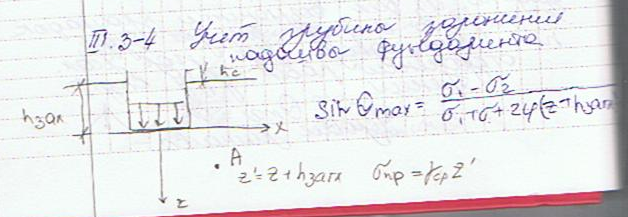 III. 3-4 Учет глубины заложения
подошвы фундамента
hс
hзал
x
sin Θmax = σ₁ - σ₂ / σ₁ + σ + 2γ(z + hзал
A
z' = z + hзагл σпр = γср z'
z